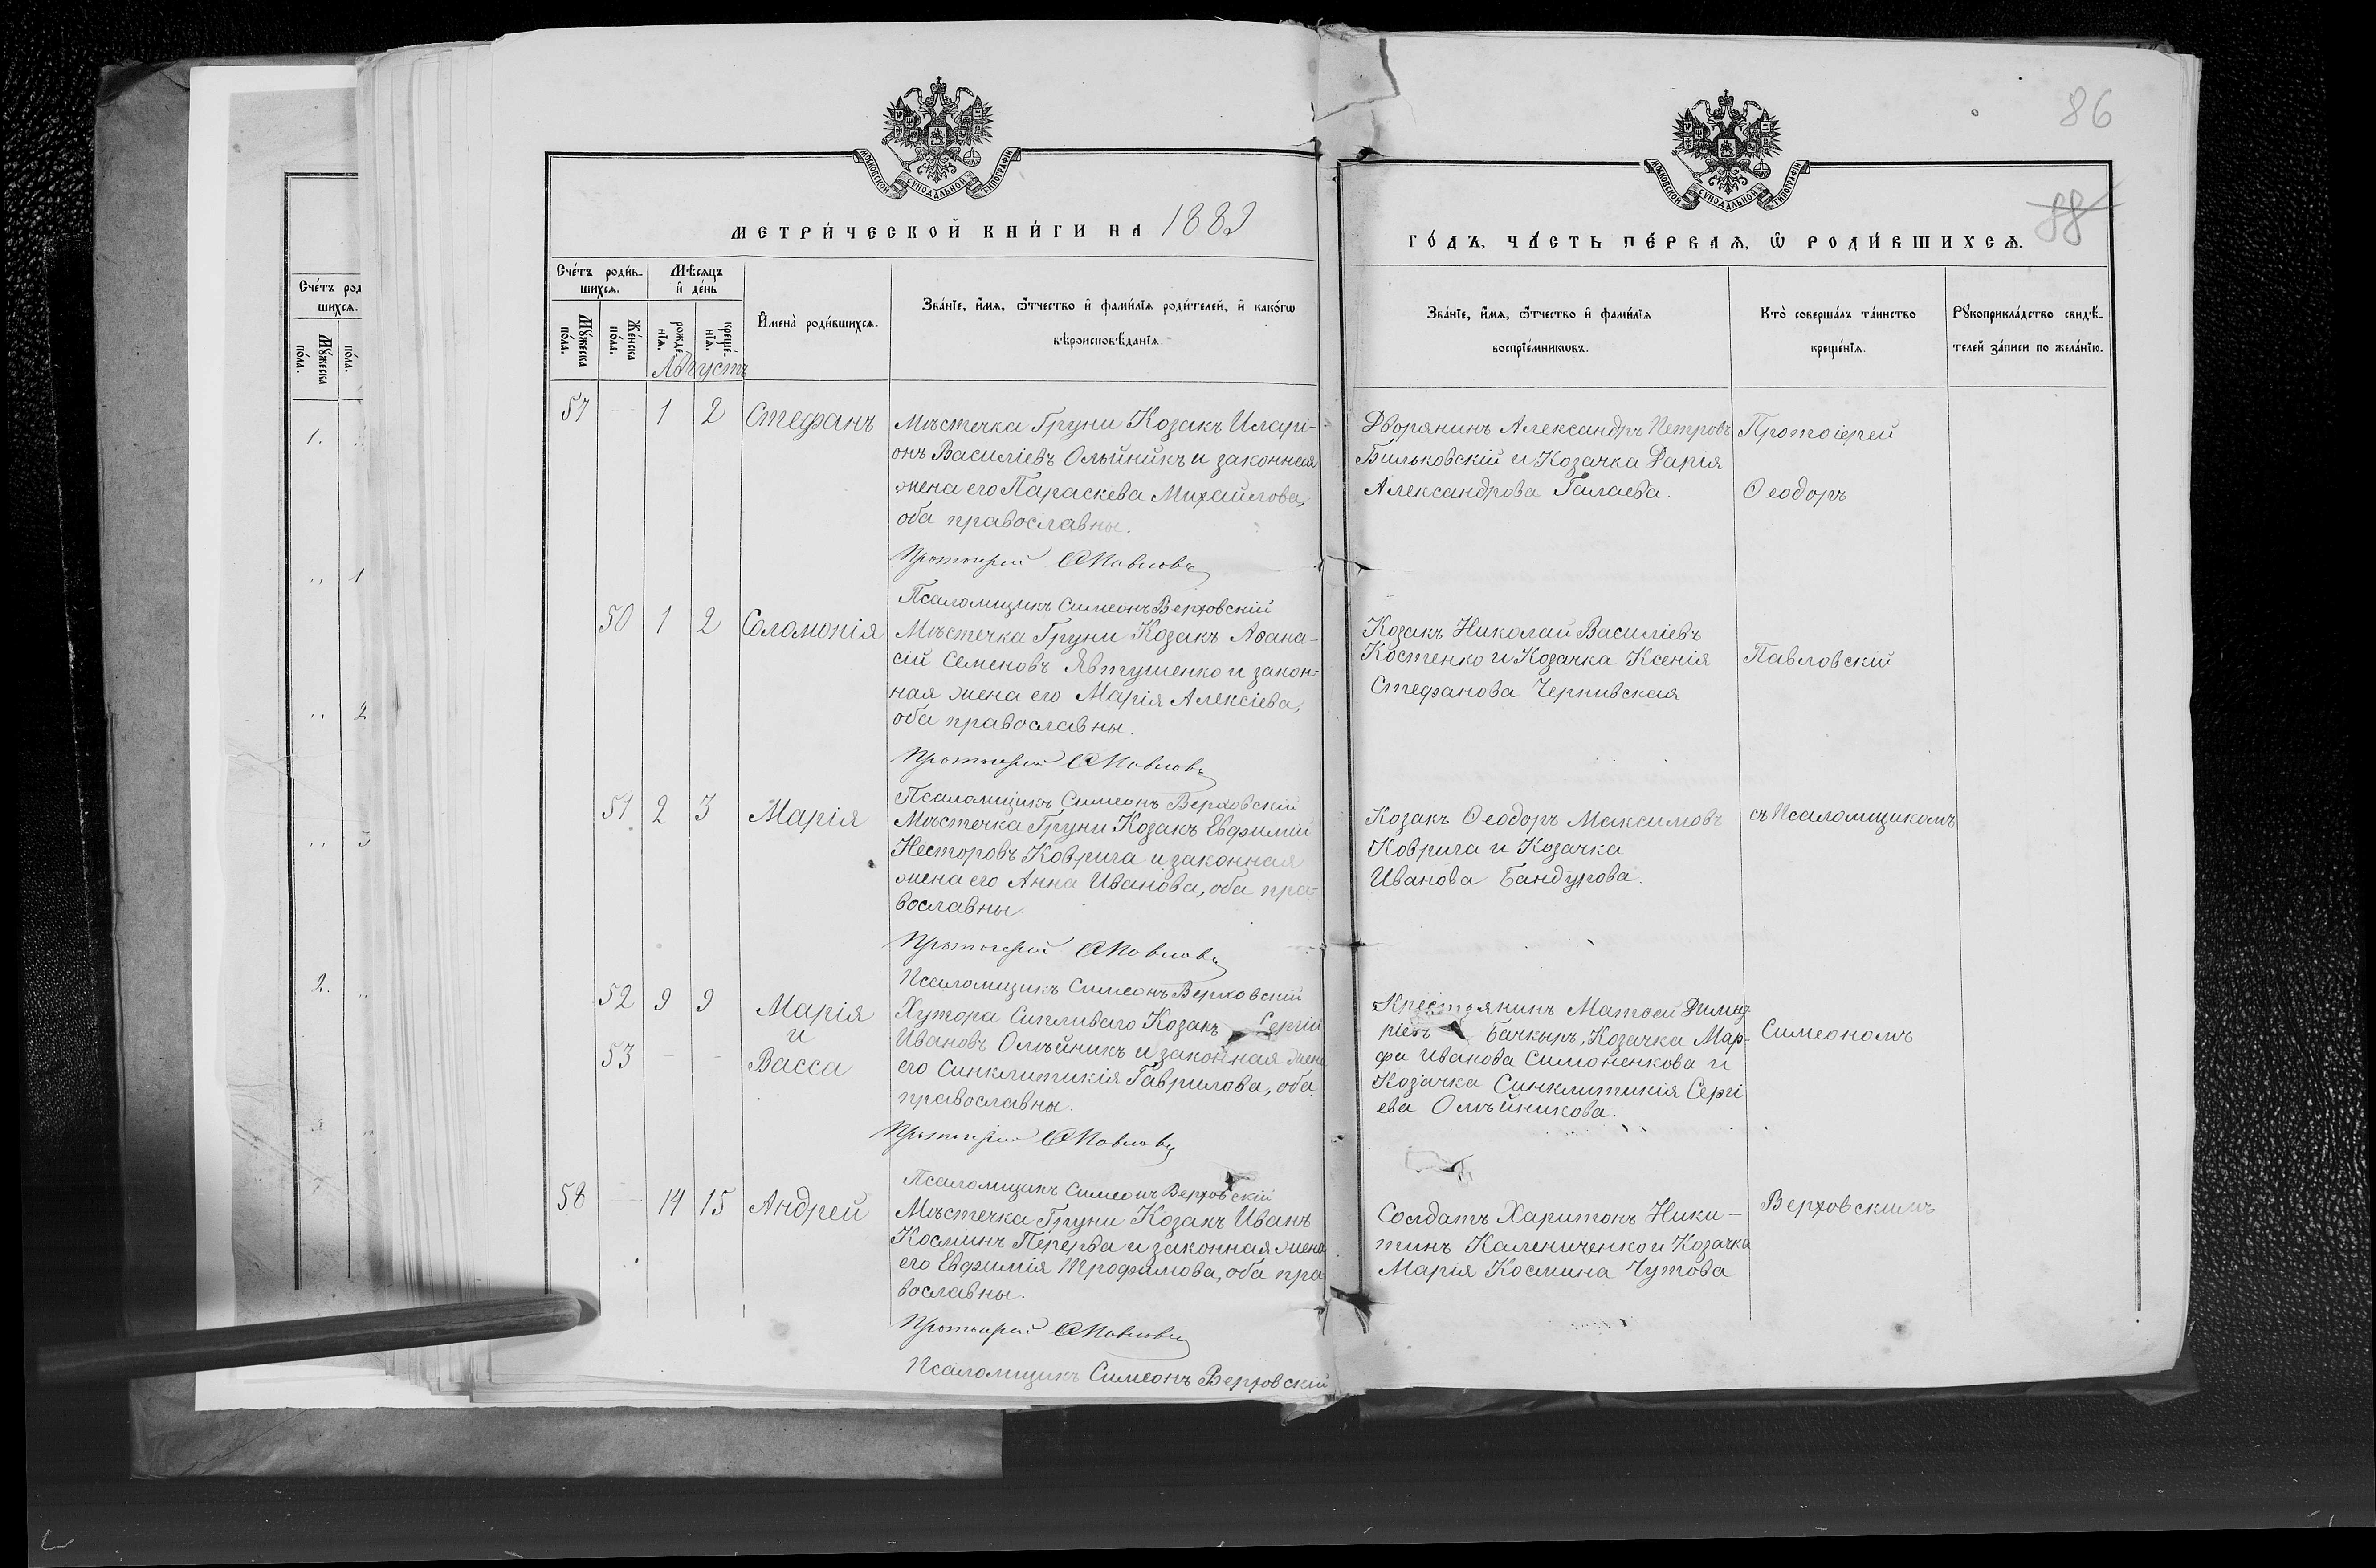 86
88
МОСКОВСКОЙ СѴНОДАЛЬНОЙ ТИПОГРАФІИ
МОСКОВСКОЙ СѴНОДАЛЬНОЙ ТИПОГРАФІИ
МЕТРИ́ЧЕСКОЙ КНИ́ГИ НА 1889
ГО́ДЪ, ЧА́СТЬ ПЕ́РВАѦ, Ѿ РОДИ́ВШИХСѦ.
Сче́тъ род
шихсѧ.
Мꙋжеска
по́ла.
по́ла.
1.
1
2
3
2.
Сче́тъ роди́в-
шихсѧ.
Мѣсѧцъ
и҆ де́нь
Мꙋ́жеска
по́ла.
Же́нска
по́ла.
рожде-
нїѧ.
креще́-
нїѧ.
И҆мена̀ роди́вшихсѧ.
Зва́нїе, и҆́мѧ, ѻ҆́тчество и҆ фами́лїѧ роди́телей, и҆ како́гѡ
вѣроисповѣ́данїѧ
Зва́нїе, и҆́мѧ, ѻ҆́тчество и҆ фами́лїѧ
воспрїе́мникѡвъ.
Кто̀ соверша́лъ та́инство
креще́нїѧ.
Рꙋкоприкла́дство свидѣ́-
телей за́писи по жела́нїю.
Августъ
57 1 2 Стефанъ
Мѣстечка Груни Козакъ Иларі-
онъ Василіевъ Олѣйникъ и законная
жена его Параскева Михайлова,
оба православны.
Протоіерей Ѳ Павловс
Псаломщикъ Симеонъ Верховскій
Дворянинъ Александръ Петровъ
Бильковскій и Козачка Дарія
Александрова Галаева.
Протоіерей
Ѳеодоръ
50 1 2 Соломонія
Мѣстечка Груни Козакъ Аѳана-
сій Семеновъ Явтушенко и закон-
ная жена его Марія Алексіева,
оба православны.
Протоіерей Ѳ Павловс
Псаломщикъ Симеонъ Верховскій
Козакъ Николай Василіевъ
Костенко и Козачка Ксенія
Стефанова Чернивская
Павловскій
51 2 3 Марія
Мѣстечка Груни Козакъ Евфимій
Несторовъ Коврига и законная
жена его Анна Иванова, оба пра-
вославны.
Протоіерей Ѳ Павловс
Псаломщикъ Симеонъ Верховскій
Козакъ Ѳеодоръ Максимовъ
Коврига и Козачка
Иванова Бандурова.
съ Псаломщикомъ
52 9 9 Марія
и
53 Васса
Хутора Сипливаго Козакъ Сергій
Ивановъ Олѣйникъ и законная жена
его Синклитикія Гаврилова, оба
православны.
Протоіерей Ѳ Павловс
Псаломщикъ Симеонъ Верховскій
Крестьянинъ Матѳей Димит
ріевъ Бачкыръ, Козачка Мар-
фа Иванова Симоненкова и
Козачка Синклитикія Сергі
ева Олѣйникова.
Симеономъ
58 14 15 Андрей
Мѣстечка Груни Козакъ Иванъ
Косминъ Перерва и законная жена
его Евфимія Трофимова, оба пра
вославны.
Протоіерей Ѳ Павловс
Псаломщикъ Симеонъ Верховскій
Солдатъ Харитонъ Ники-
тинъ Калениченко и Козачка
Марія Космина Чутова
Верховскимъ